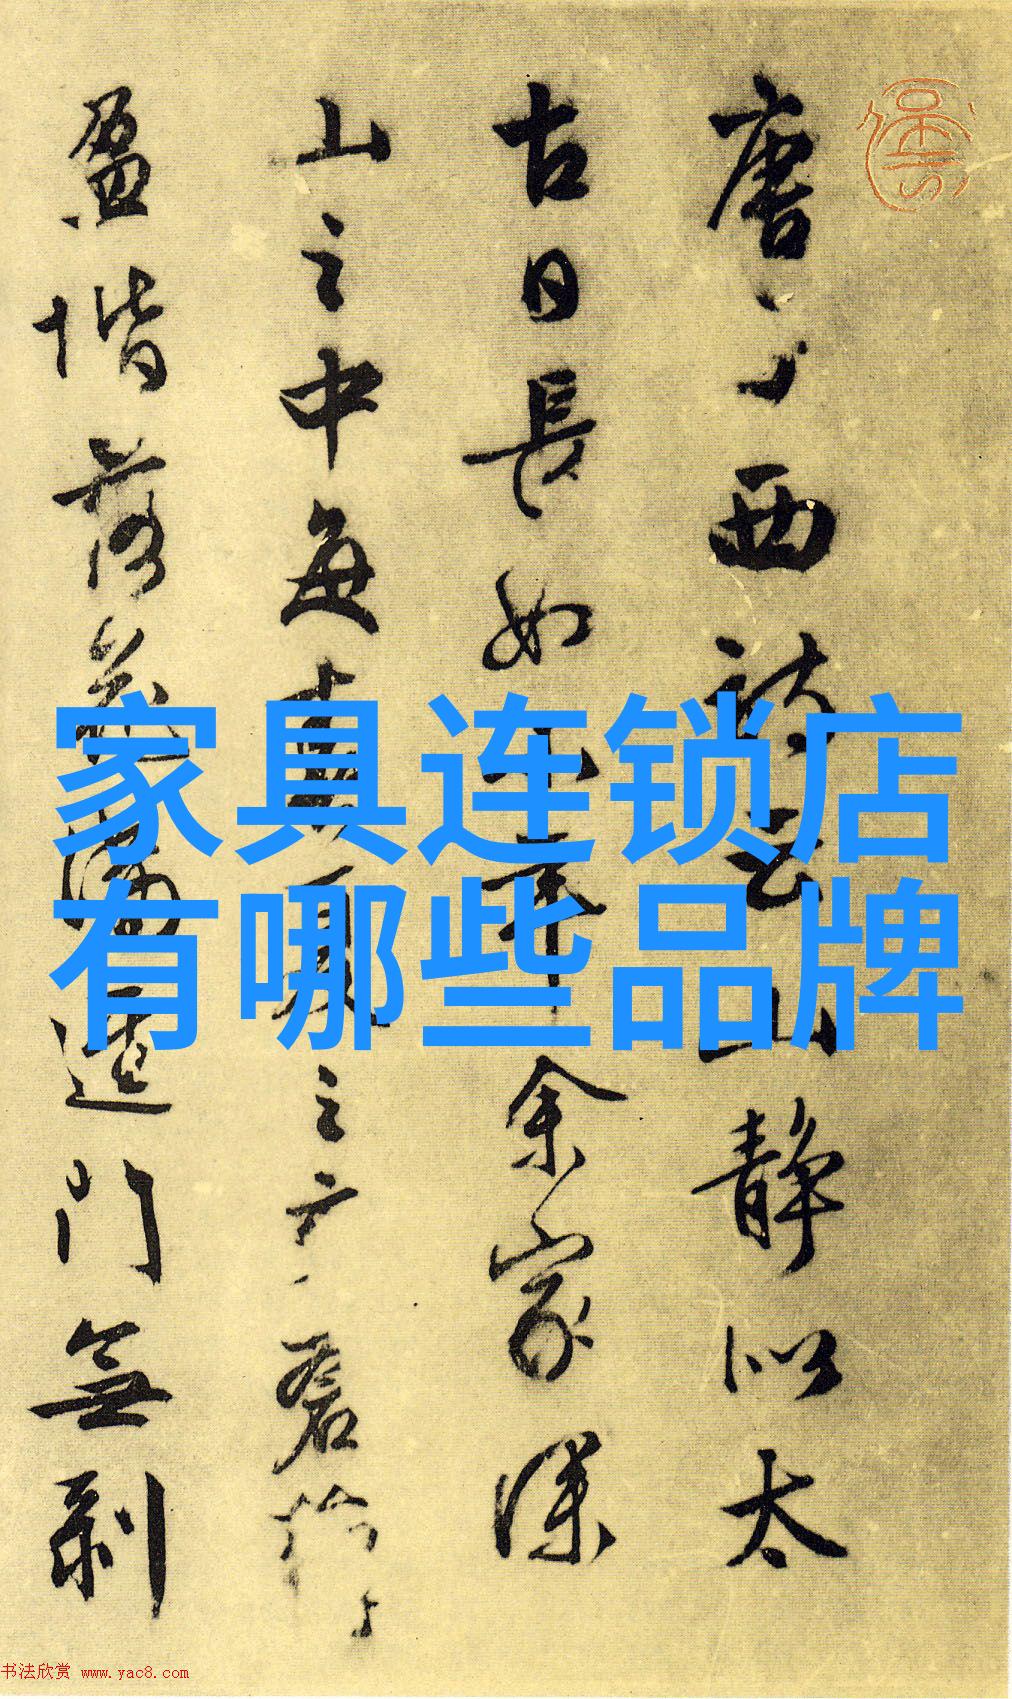 唐子西詩云山静似太
古日長如小年余家深
山之中每春夏之交蒼蘚
盈堦落花滿逕門無剥
家具连锁店
有哪些品牌
书法欣赏 www.yac8.com